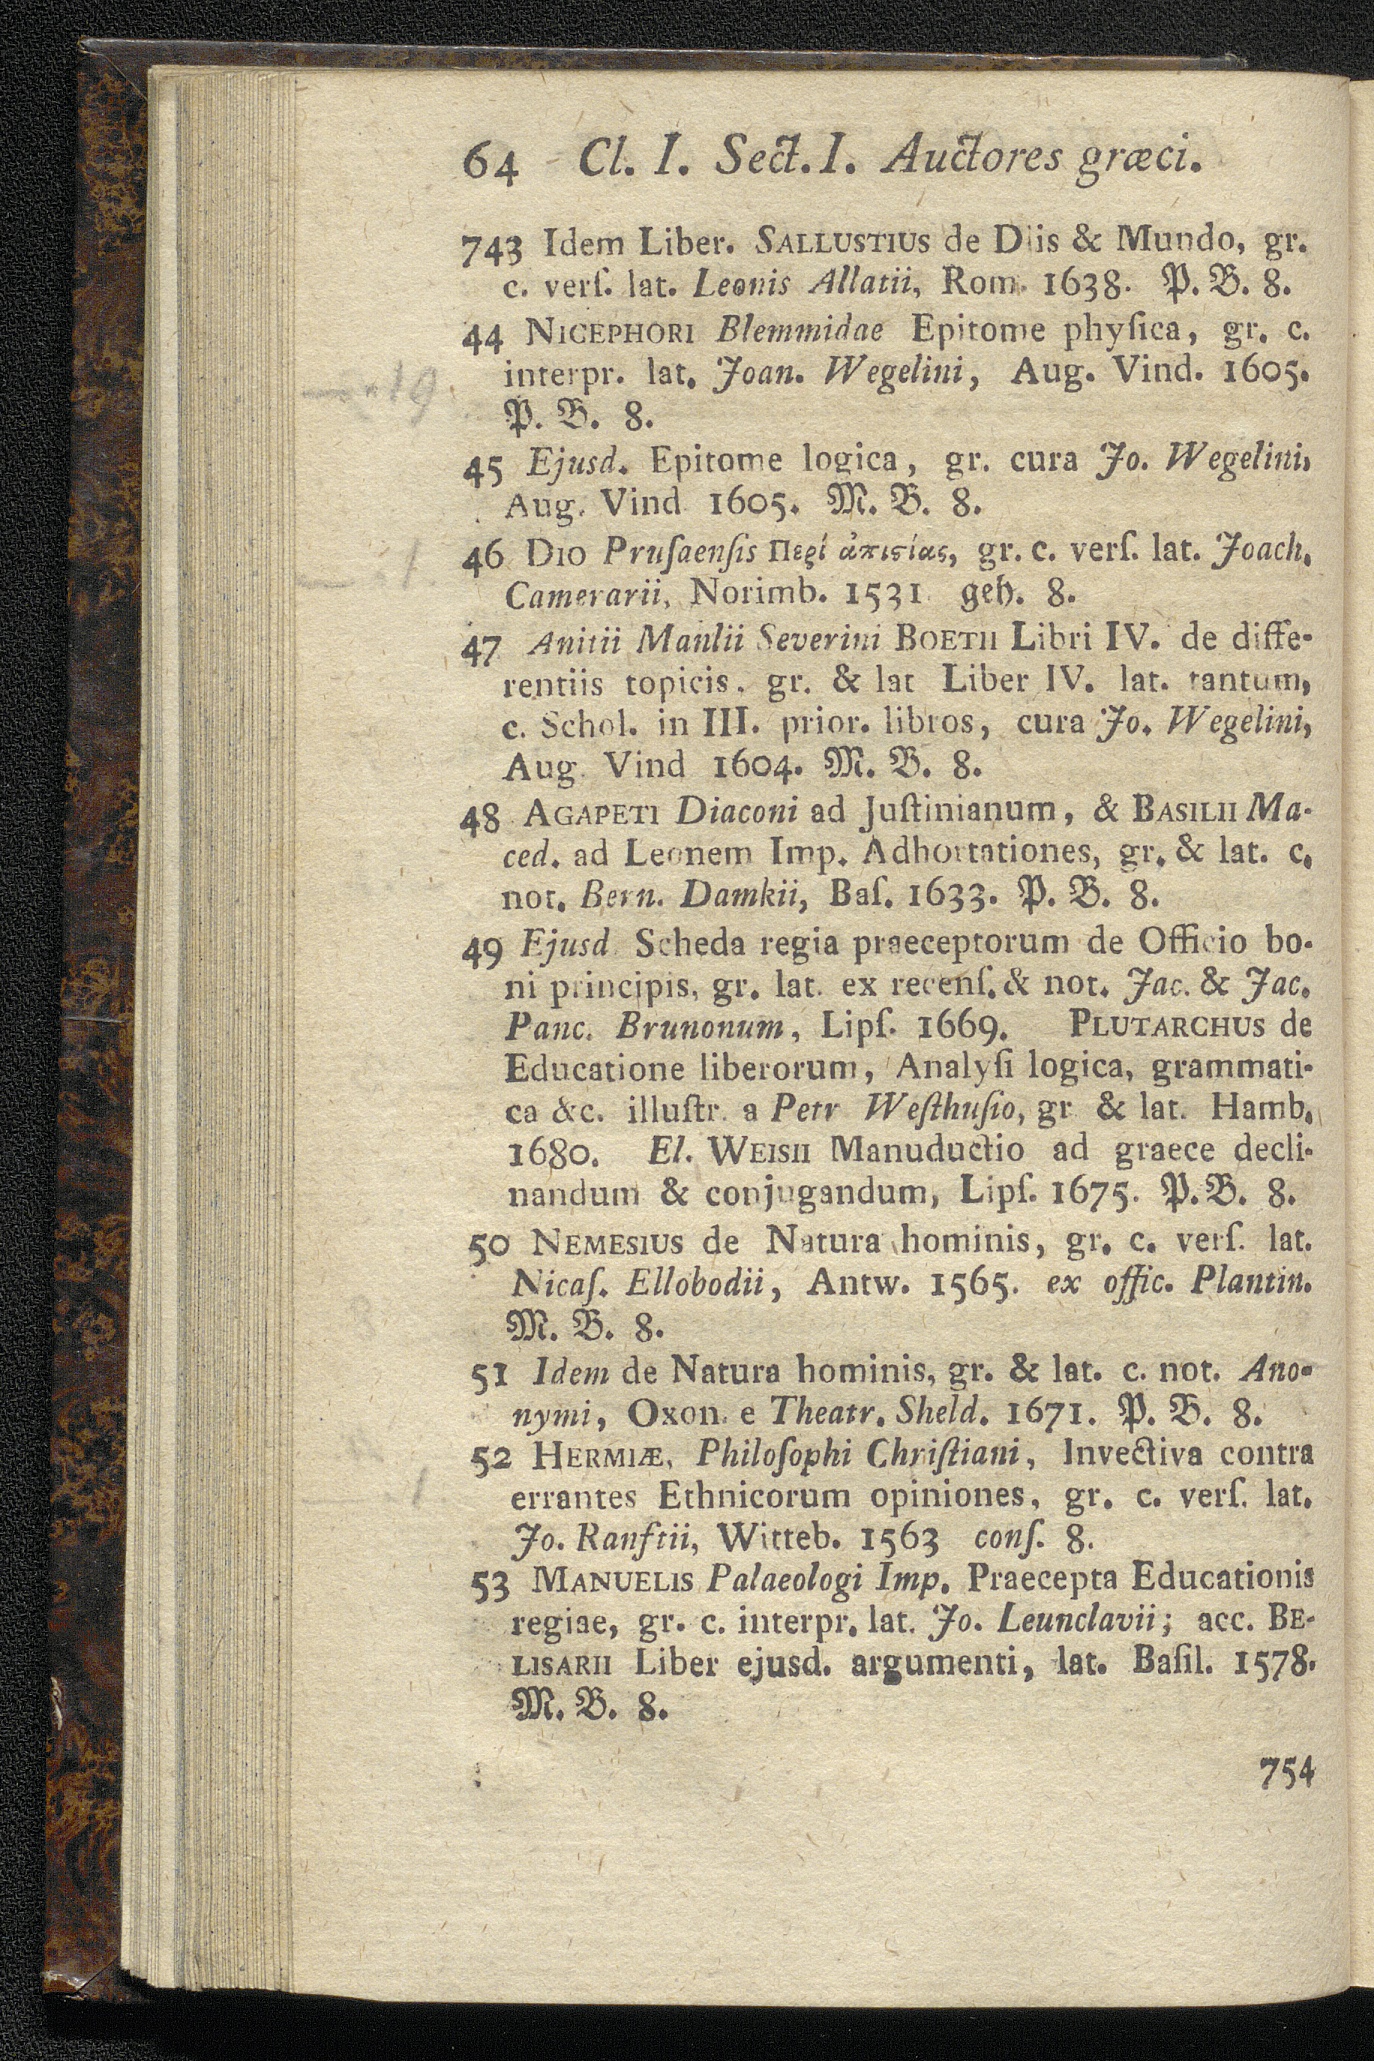 64 Cl. I. Sect. I. Auctores græci.
743 Idem Liber. SALLUSTIUS de Diis & Mundo, gr.
c. verſ. lat. Leonis Allatii, Rom. 1638. P. B. 8.
44 NICEPHORI Blemmidae Epitome phyſica, gr. c.
interpr. lat. Joan. Wegelini, Aug. Vind. 1605.
P. B. 8.
45 Ejusd. Epitome logica, gr. cura Jo. Wegelini,
Aug. Vind 1605. M. B. 8.
46 DIO Pruſaenſis Περὶ ἀπιϛίας, gr. c. verſ. lat. Joach.
Camerarii, Norimb. 1531 geh. 8.
47 Anitii Manlii Severini BOETII Libri IV. de diffe-
rentiis topicis, gr. & lat Liber IV. lat. tantum,
c. Schol. in III. prior. libros, cura Jo. Wegelini,
Aug. Vind 1604. M. B. 8.
48 AGAPETI Diaconi ad Juſtinianum, & BASILII Ma-
ced. ad Leonem Imp. Adhortationes, gr. & lat. c.
not. Bern. Damkii, Baſ. 1633. P. B. 8.
49 Ejusd Scheda regia praeceptorum de Officio bo-
ni principis, gr. lat. ex recenſ. & not. Jac. & Jac.
Panc. Brunonum, Lipſ. 1669. PLUTARCHUS de
Educatione liberorum, Analyſi logica, grammati-
ca &c. illuſtr. a Petr Weſthuſio, gr & lat. Hamb.
1680. El. WEISII Manuductio ad graece decli-
nandum & conjugandum, Lipſ. 1675. P. B. 8.
50 NEMESIUS de Natura hominis, gr. c. verſ. lat.
Nicaſ. Ellobodii, Antw. 1565. ex offic. Plantin.
M. B. 8.
51 Idem de Natura hominis, gr. & lat. c. not. Ano-
nymi, Oxon. e Theatr. Sheld. 1671. P. B. 8.
52 HERMIÆ, Philoſophi Chriſtiani, Invectiva contra
errantes Ethnicorum opiniones, gr. c. verſ. lat.
Jo. Ranftii, Witteb. 1563 conſ. 8.
53 MANUELIS Palaeologi Imp. Praecepta Educationis
regiae, gr. c. interpr. lat. Jo. Leunclavii; acc. BE-
LISARII Liber ejusd. argumenti, lat. Baſil. 1578.
M. B. 8.
754